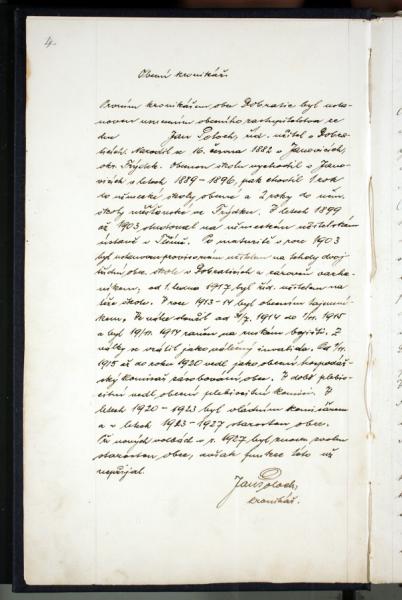 4.
Obecní kronikář.
Prvním kronikářem obce Dobratic byl usta-
noven usnesením obecního zastupitelstva ze
dne Jan Poloch, říd. učitel v Dobra-
ticích. Narodil se 16. června 1882 v Janovicích,
okr. Frýdek. Obecnou školu vychodil v Jano-
vicích v letech 1889–1896, pak chodil 1 rok
do německé školy obecné a 2 roky do něm.
školy měšťanské ve Frýdku. V letech 1899
až 1903 studoval na německém učitelském
ústavě v Těšíně. Po maturitě v roce 1903
byl ustanoven provisorním učitelem na tehdy dvoj
třídní obec. škole v Dobraticích a zároveň varha-
níkem, od 1. ledna 1917 byl říd. učitelem na
téže škole. V roce 1913–14 byl obecním tajemní-
kem. Ve válce sloužil od 1914 do 1915
a byl 1914 raněn na ruském bojišti. Z
války se vrátil jako válečný invalida. Od
1915 až do roku 1920 vedl jako obecní hospodář-
ský komisař zásobování obce. V době plebis-
citní vedl obecní plebiscitní komisi. V
letech 1920–1923 byl vládním komisařem
a v letech 1923–1927 starostou obce.
Při nových volbách v r. 1927 byl znovu zvolen
starostou obce, avšak funkce této už
nepřijal.
Jan Poloch,
kronikář.